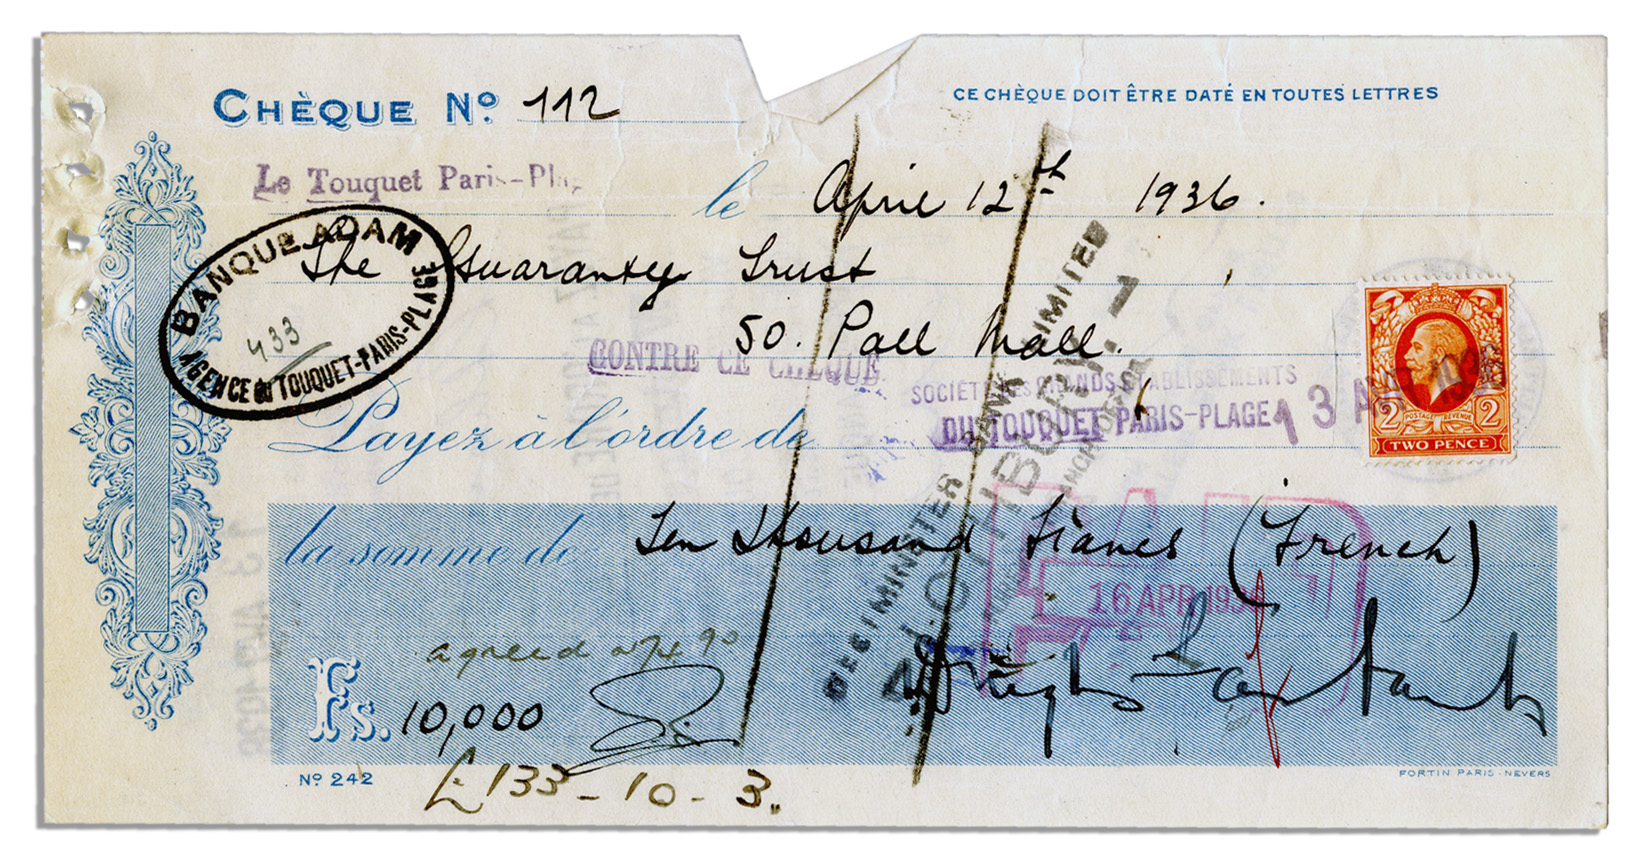 CHÈQUE Nº 112
CE CHÈQUE DOIT ÊTRE DATÉ EN TOUTES LETTRES
Le Touquet Paris-Pla
le April 12th 1936.
BANQUE ADAM
433
AGENCE DU TOUQUET-PARIS-PLAGE
The Guaranty Trust
50. Pall Mall.
CONTRE CE CHÈQUE
SOCIÉTÉ DES GRANDS ÉTABLISSEMENTS
DU TOUQUET PARIS-PLAGE
13 A
2 POSTAGE REVENUE 2
TWO PENCE
Payez à l'ordre de
WESTMINSTER BANK LIMITED
LOTHBURY
la somme de Ten Thousand Francs (French)
PAID
16 APR 193
agreed
Fs. 10,000
Nº 242
£133-10-3.
FORTIN PARIS-NEVERS